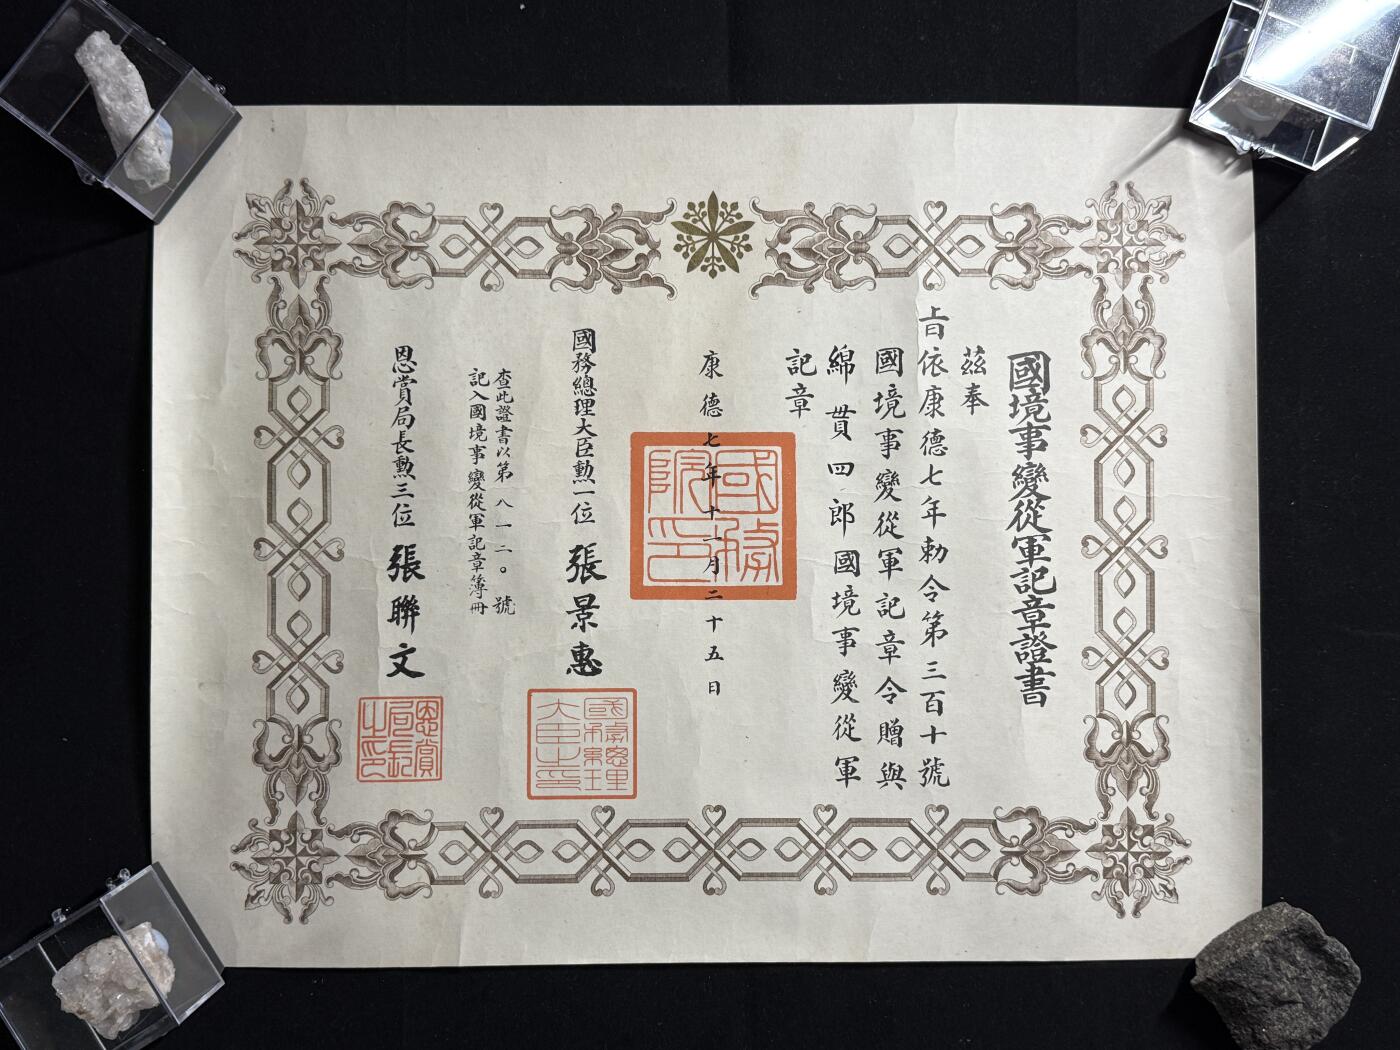 國境事變從軍記章證書
茲奉
旨依康德七年勅令第三百十號
國境事變從軍記章令贈與
綿貫四郎國境事變從軍
記章
康德七年十一月二十五日
國務院印
國務總理大臣勲一位 張景惠
國務總理大臣之印
查此證書以第八一二〇號
記入國境事變從軍記章簿冊
恩賞局長勲三位 張聯文
恩賞局長之印